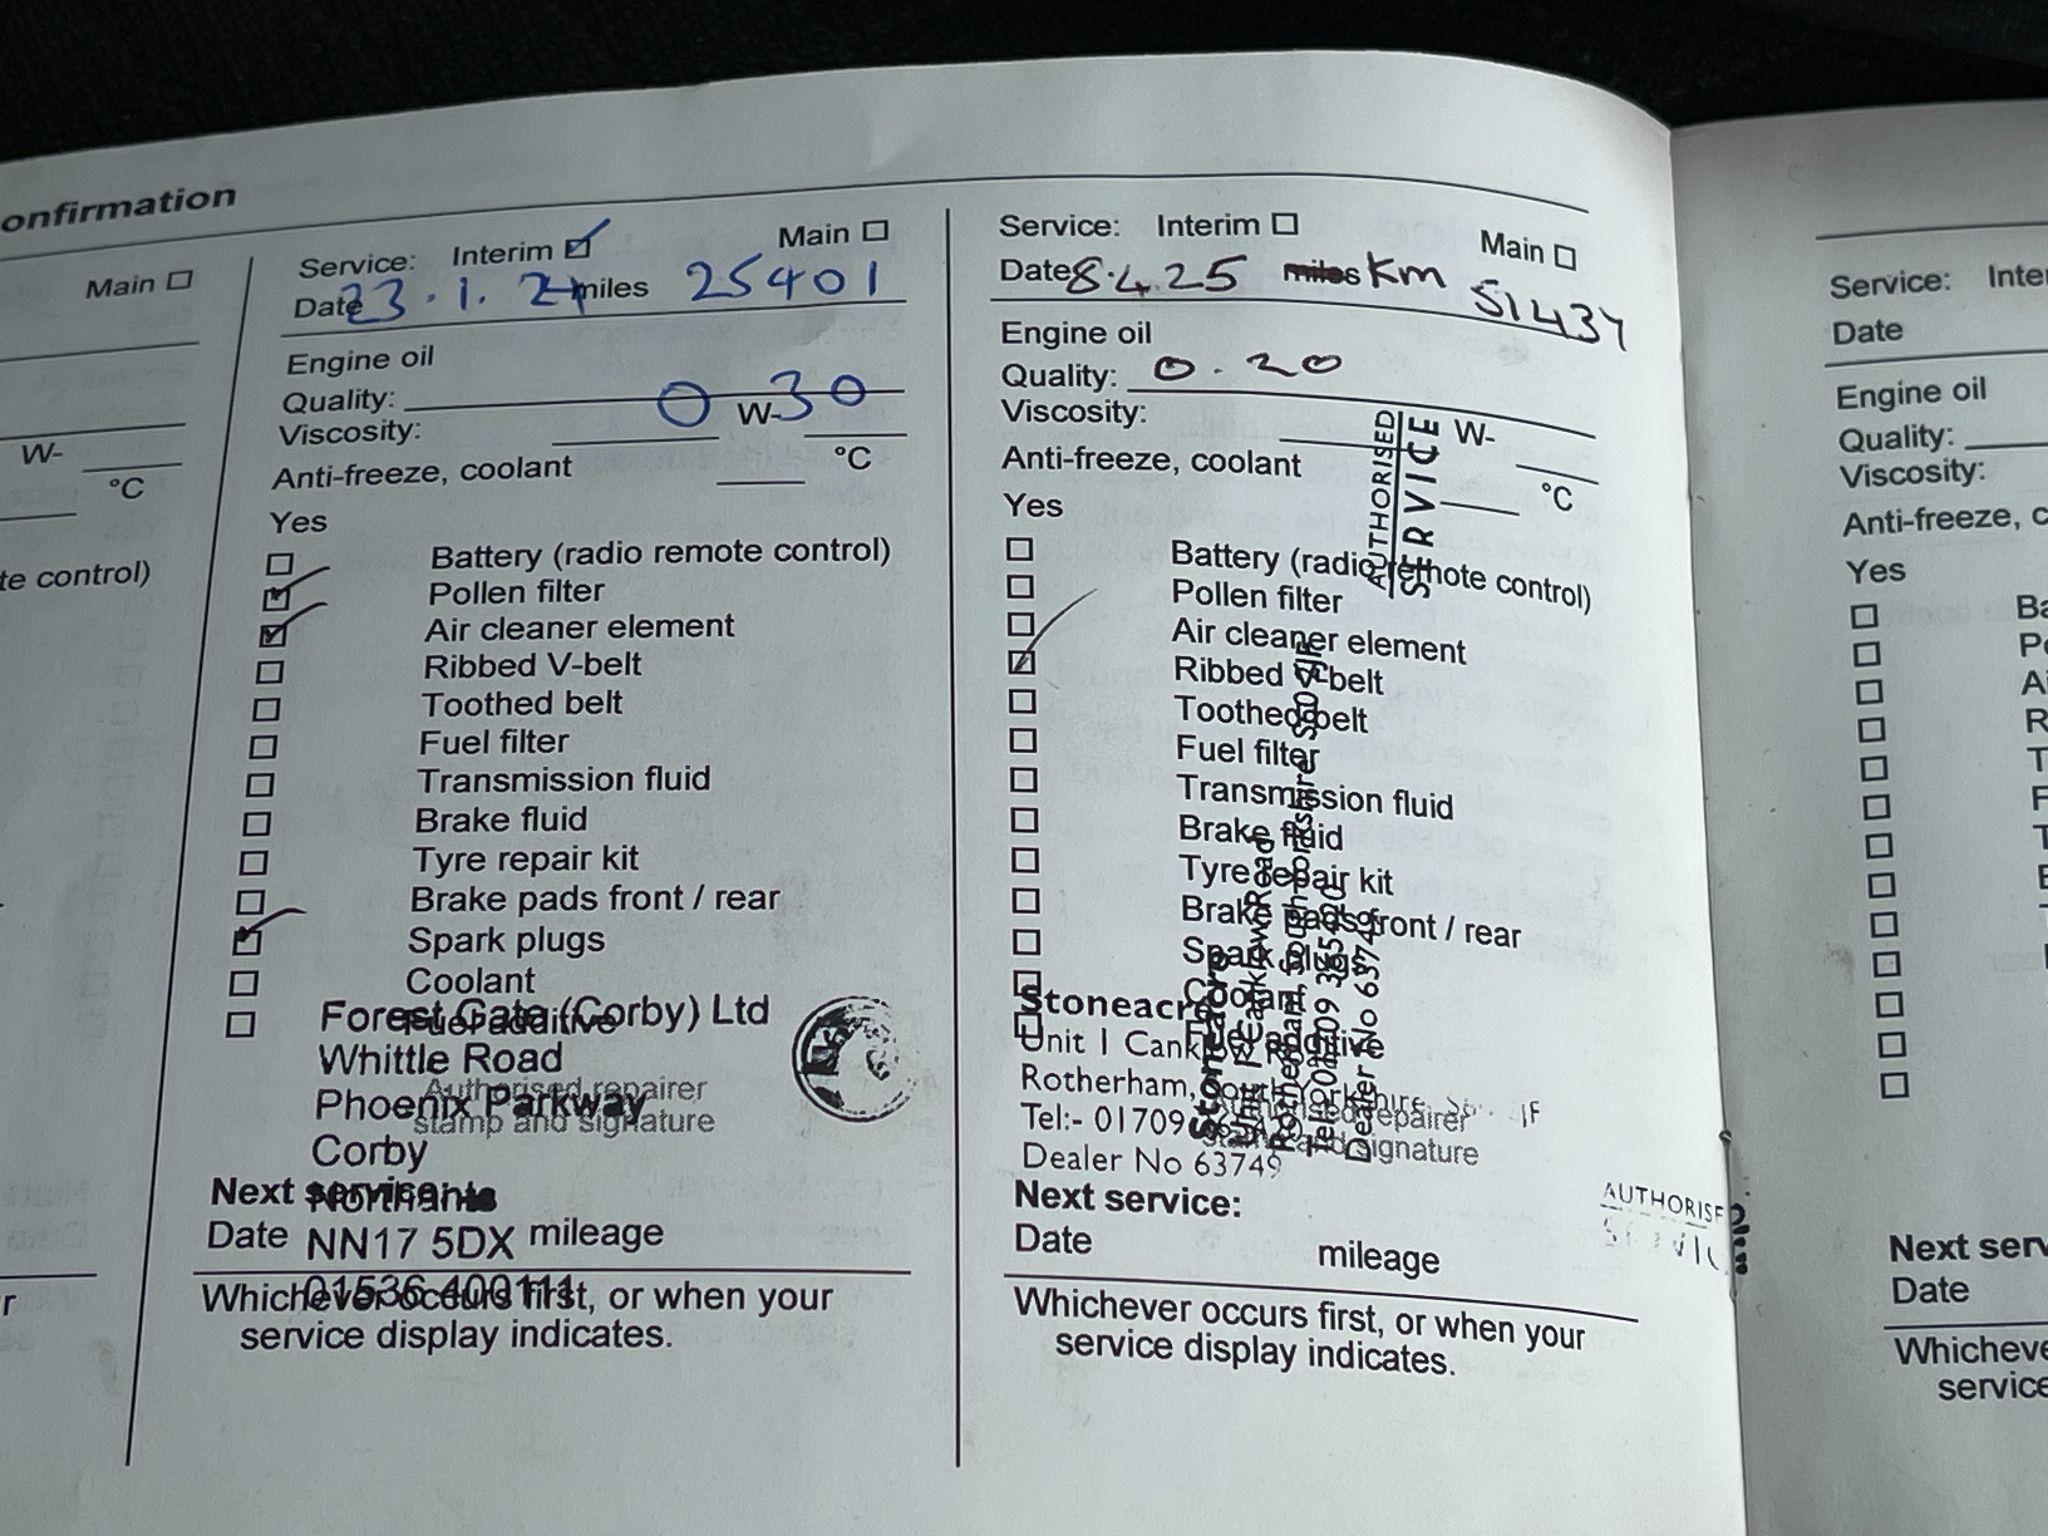 onfirmation
Main
W-
°C
te control)
r
Service: Interim Main
Date 23.1.24 miles 25401
Engine oil
Quality:
Viscosity: 0 W-30
Anti-freeze, coolant °C
Yes
Battery (radio remote control)
Pollen filter
Air cleaner element
Ribbed V-belt
Toothed belt
Fuel filter
Transmission fluid
Brake fluid
Tyre repair kit
Brake pads front / rear
Spark plugs
Coolant
Fuel additive
Forest Gate (Corby) Ltd
Whittle Road
Phoenix Parkway
Corby
Northants
NN17 5DX
01536 400111
Authorised repairer
stamp and signature
Next service:
Date mileage
Whichever occurs first, or when your
service display indicates.
Service: Interim Main
Date 8.4.25 miles Km 51434
Engine oil
Quality: 0.20
Viscosity: W-
Anti-freeze, coolant °C
Yes
Battery (radio remote control)
Pollen filter
Air cleaner element
Ribbed V-belt
Toothed belt
Fuel filter
Transmission fluid
Brake fluid
Tyre repair kit
Brake pads front / rear
Spark plugs
Coolant
Fuel additive
AUTHORISED
SERVICE
Stoneacre
Unit 1 Canklow Road
Rotherham, South Yorkshire
Tel:- 01709
Dealer No 63749
Stoneacre
Unit 1 Canklow Road
Rotherham, South Yorkshire
Dealer No 63749
Authorised repairer
stamp and signature
Next service:
Date mileage
Whichever occurs first, or when your
service display indicates.
Service: Inter
Date
Engine oil
Quality:
Viscosity:
Anti-freeze, c
Yes
Ba
Po
Ai
R
T
F
T
B
Next serv
Date
Whicheve
service